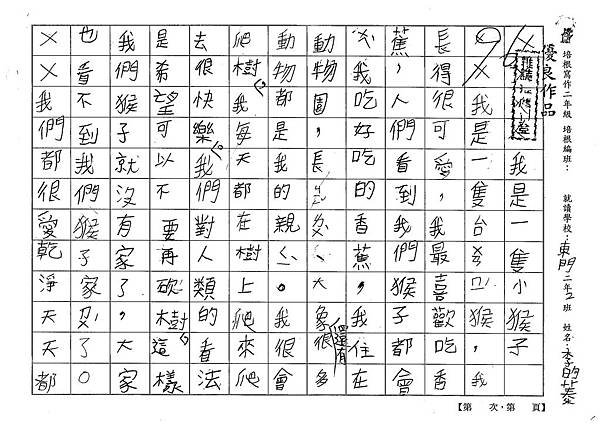 培根寫作二年級 培根編班： 就讀學校：東門 二年2班 姓名：李昀蓁
優良作品
96
××我是一隻小猴子
××我是一隻台ㄨㄢ ㄇㄧˊ猴，我
長得很可愛，我最喜歡吃香
蕉，人們看到我們猴子都會
我吃好吃的香蕉，我住在
動物園，長 大象還有很多
動物都是我的親人。我很會
爬樹，我每天都在樹上爬來爬
去很快樂。我們對人類的看法
是希望可以不要再砍樹，這樣
我們猴子就沒有家了，大家
也看不到我們猴子家ㄗㄨˊ了。
××我們都很愛乾淨天天都
【第 次‧第 頁】